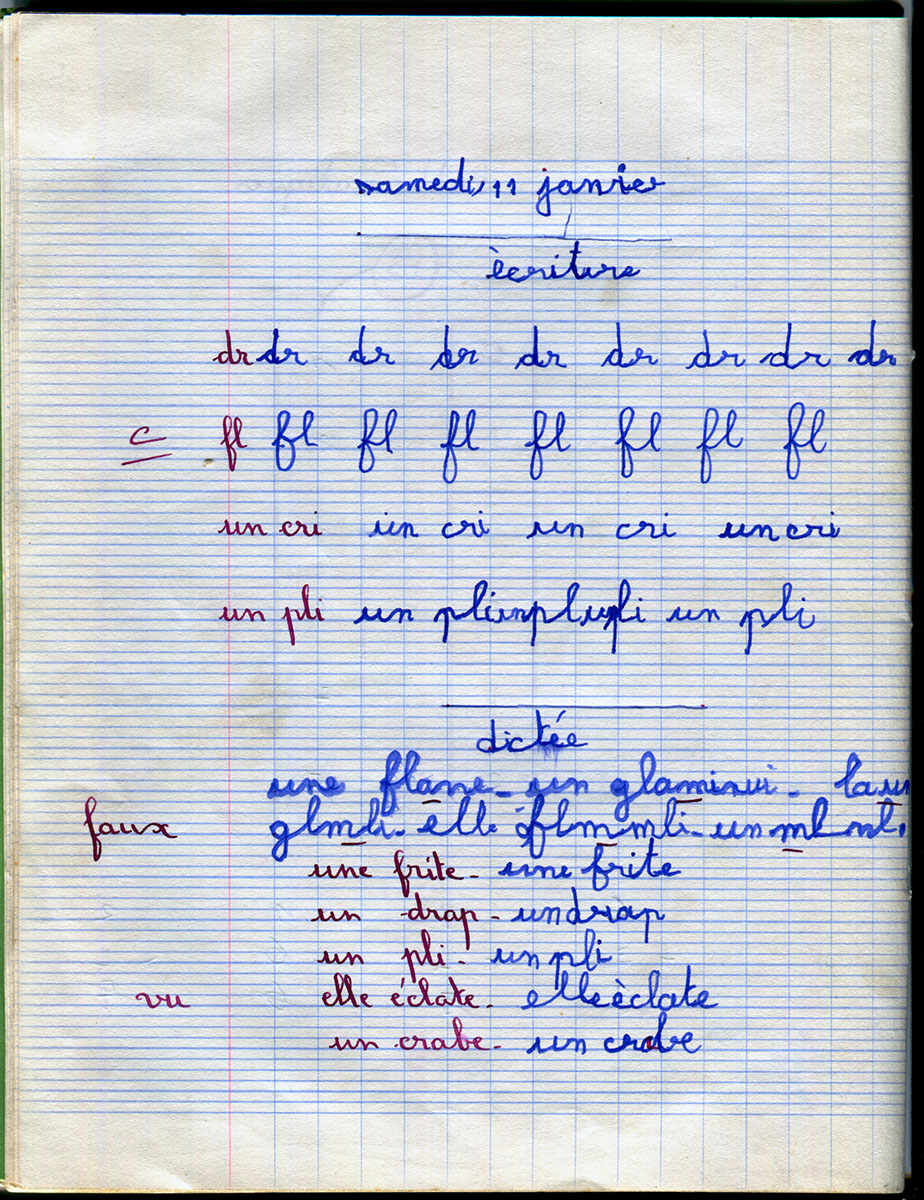 samedi 11 janvier
ècriture
dr dr dr dr dr dr dr dr dr
c fl fl fl fl fl fl fl fl
un cri un cri un cri un cri
un pli un pli un pli un pli
dictée
une flane - un glaminui -
faux glmli - elle flmmli - un
une frite - une frite
un drap - un drap
un pli - un pli
vu elle éclate - elle èclate
un crabe - un crabe